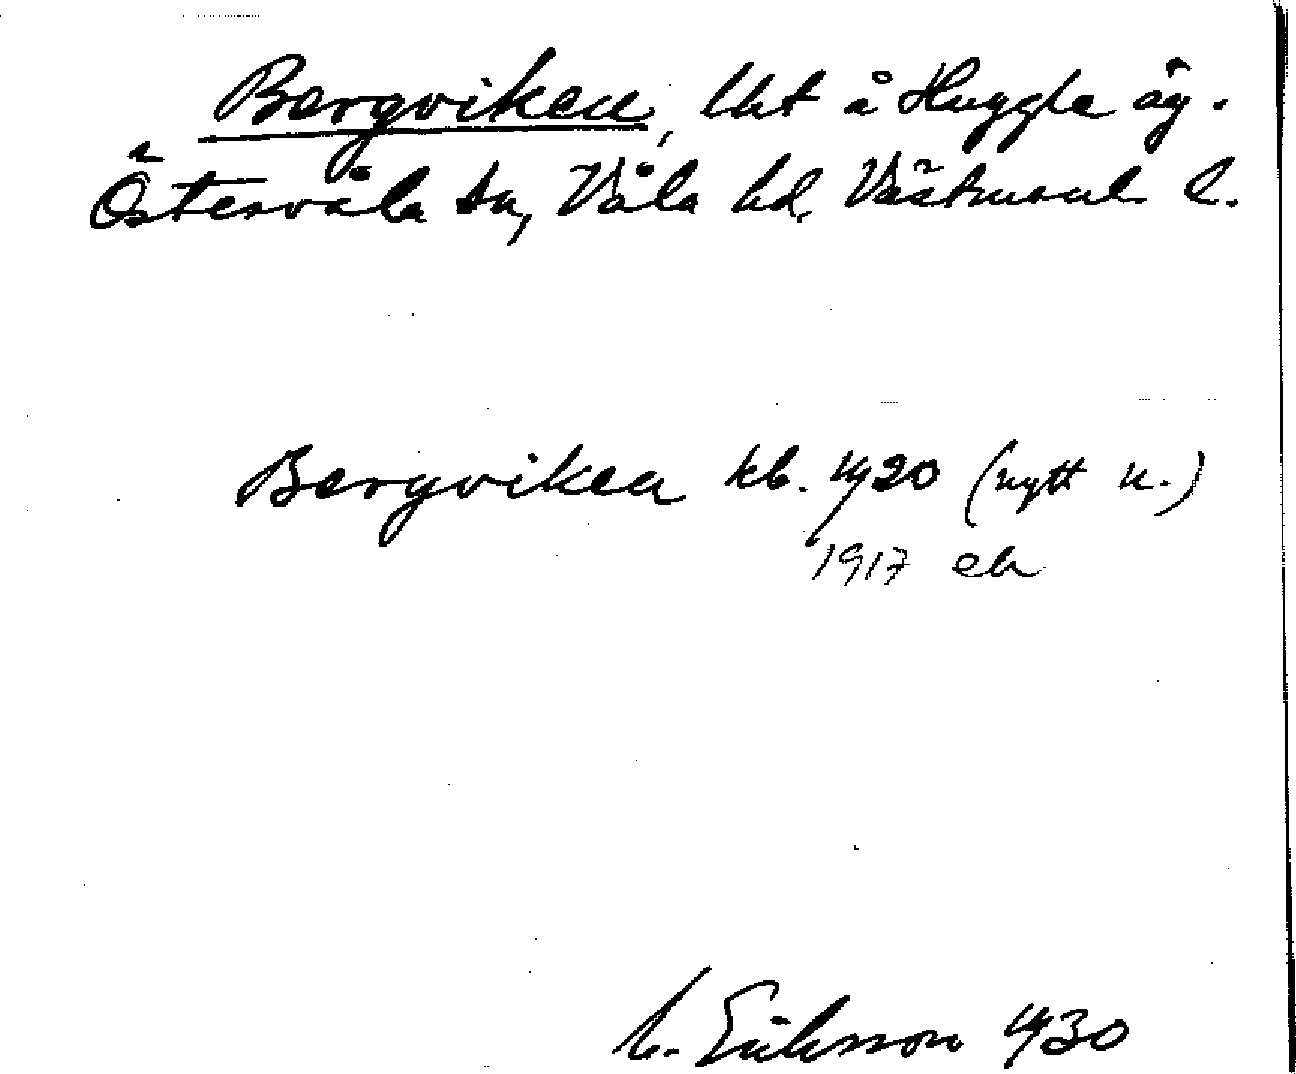 Bergviken, lht å Huggle äg.
Östervåla sn, Våla hd, Västmanl. l.
Bergviken kb. 1920 (nytt n.)
1917 eb
Eriksson 1930